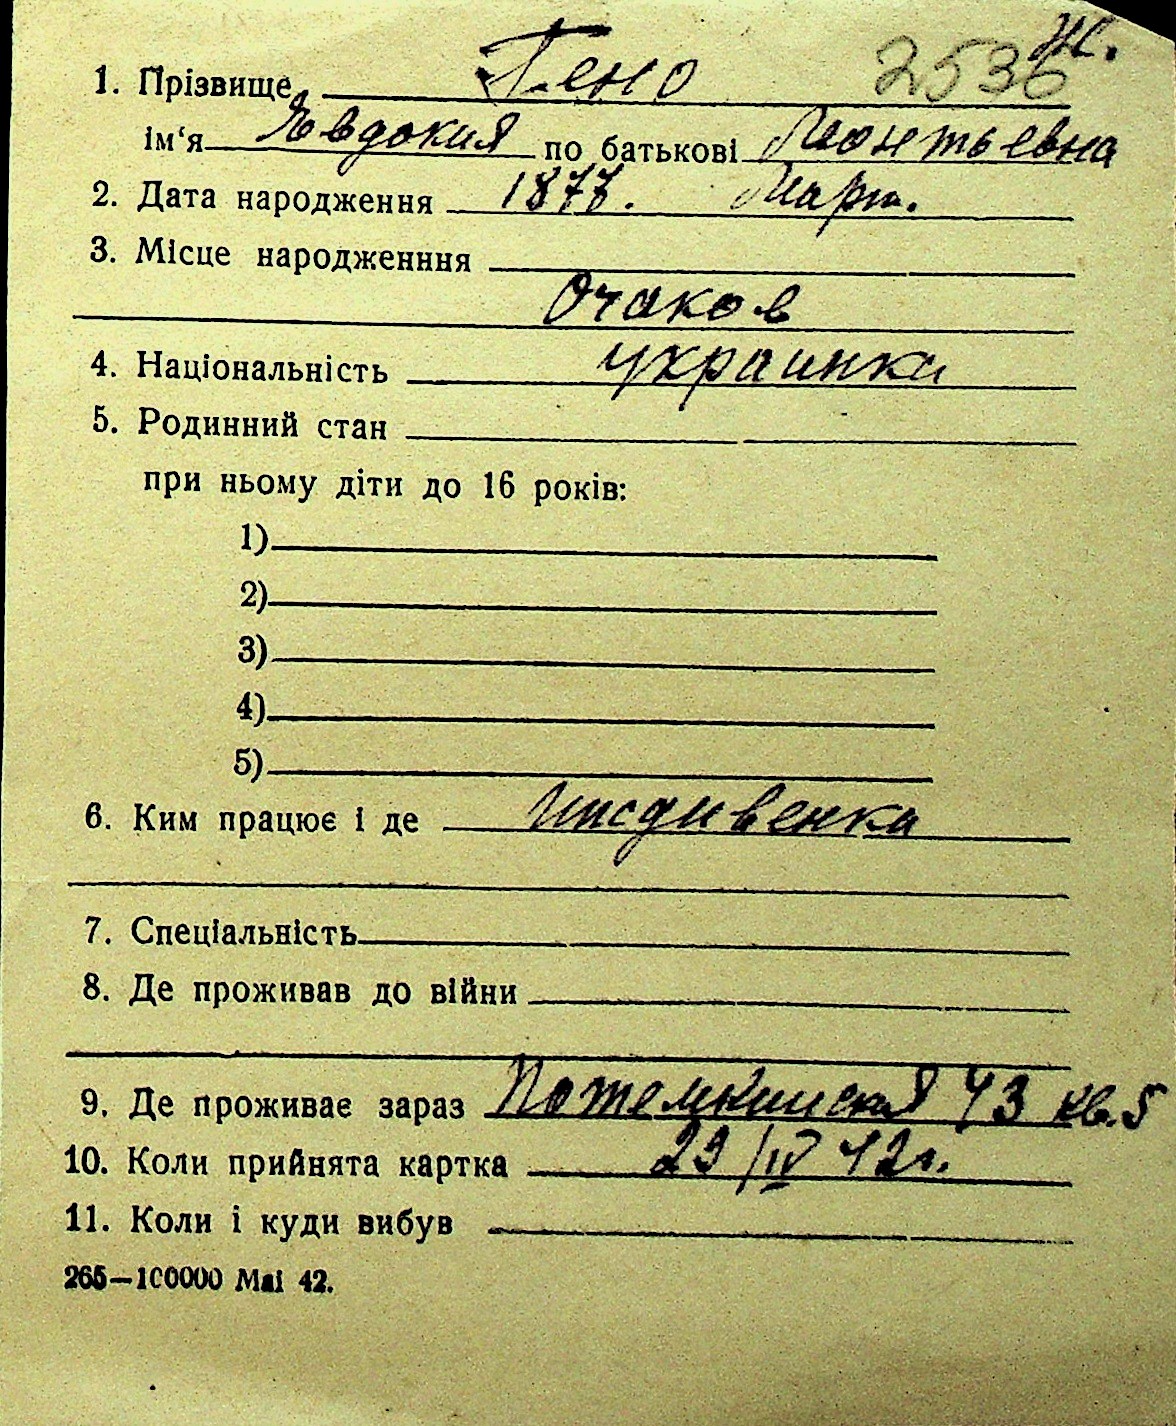 Ж.
1. Прізвище Гено 2536
ім‘я Явдокия по батькові Леонтьевна
2. Дата народження 1877. Март.
3. Місце народженння
Очаков
4. Національність украинка
5. Родинний стан
при ньому діти до 16 років:
1)
2)
3)
4)
5)
6. Ким працює і де Иисдивенка
7. Спеціальність
8. Де проживав до війни
9. Де проживає зараз Потемкинская 43 кв.5
10. Коли прийнята картка 29/IV 42г.
11. Коли і куди вибув
265—100000 Маі 42.